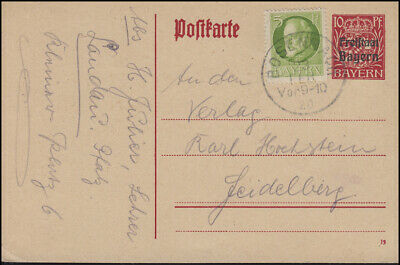 Postkarte
5
10 PF
Freistaat
Bayern
BAYERN
Vor 9-10
20
An den
Verlag
Karl Hochstein
Heidelberg
Abs H. Lehrer
Landau. Pfalz
6
19